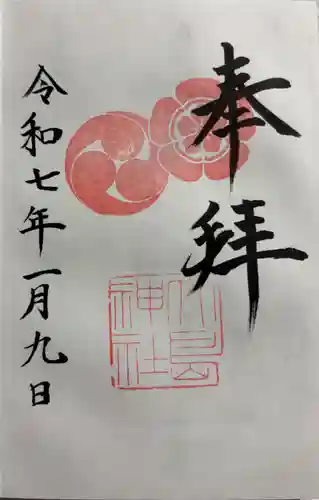 奉拝
小島
神社
令和七年一月九日